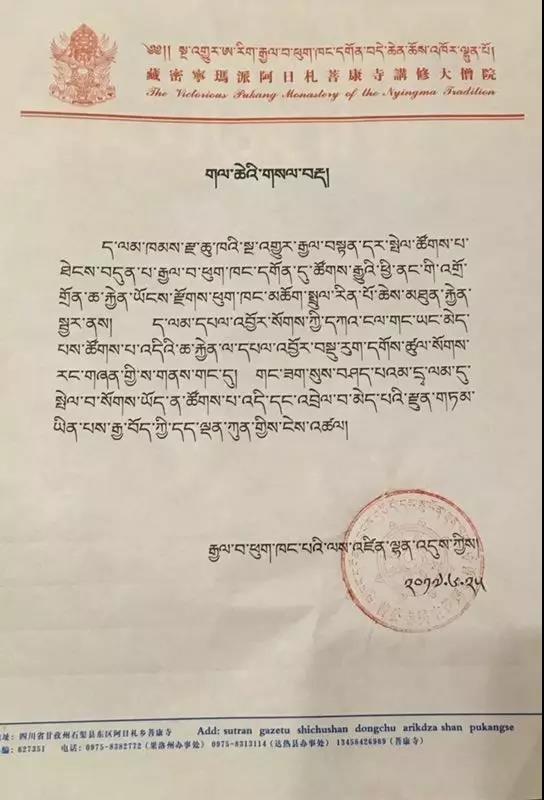 ༄༅།། སྔ་འགྱུར་ཨ་རིག་རྒྱལ་བ་ཕུག་ཁང་དགོན་བདེ་ཆེན་ཆོས་འཁོར་ལྷུན་པོ།
藏密寧瑪派阿日札菩康寺講修大僧院
The Victorious Pukang Monastery of the Nyingma Tradition
གལ་ཆེའི་གསལ་བརྡ།
ད་ལམ་ཁམས་རྫ་ཆུ་ཁའི་སྔ་འགྱུར་རྒྱལ་བསྟན་དར་སྤེལ་ཚོགས་པ་
ཐེངས་བདུན་པ་རྒྱལ་བ་ཕུག་ཁང་དགོན་དུ་ཚོགས་རྒྱུའི་ཕྱི་ནང་གི་འགྲོ་
གྲོན་ཆ་རྐྱེན་ཡོངས་རྫོགས་ཕུག་ཁང་མཆོག་སྤྲུལ་རིན་པོ་ཆེས་མཐུན་རྐྱེན་
སྦྱར་ནས། ད་ལམ་དཔལ་འབྱོར་སོགས་ཀྱི་དཀའ་ངལ་གང་ཡང་མེད་
པས་ཚོགས་པ་འདིའི་ཆ་རྐྱེན་ལ་དཔལ་འབྱོར་བསྡུ་རུག་དགོས་ཚུལ་སོགས་
རང་གཞན་གྱི་ས་གནས་གང་དུ། གང་ཟག་སུས་བཤད་པའམ་དྲྭ་ལམ་དུ་
སྤེལ་བ་སོགས་ཡོད་ན་ཚོགས་པ་འདི་དང་འབྲེལ་བ་མེད་པའི་རྫུན་གཏམ་
ཡིན་པས་རྒྱ་བོད་ཀྱི་དད་ལྡན་ཀུན་གྱིས་ངེས་འཚལ།
རྒྱལ་བ་ཕུག་ཁང་པའི་ལས་འཛིན་ལྷན་འདུས་ཀྱིས།
༢༠༡༧.༤.༢༥
地址: 四川省甘孜州石渠县东区阿日札乡菩康寺 Add: sutran gazetu shichushan dongchu arikdza shan pukangse
编: 627351 电话: 0975-8382772 (果洛州办事处) 0975-8313114 (达热县办事处) 13458426989 (菩康寺)